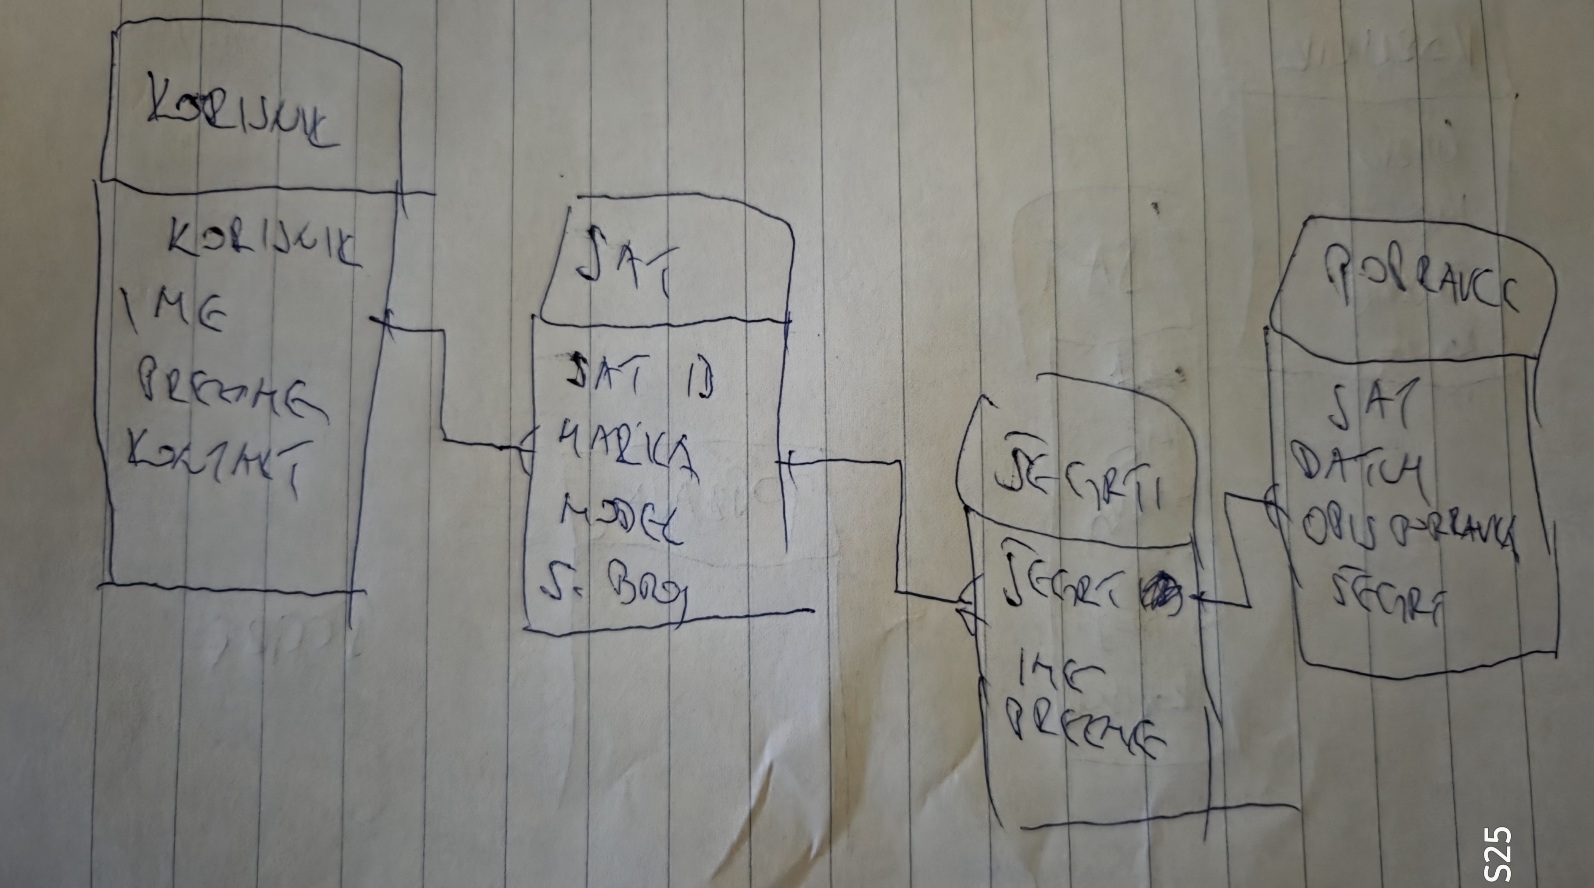 KORISNIK
KORISNIK
IME
PREZIME
KONTAKT
SAT
SAT ID
MARKA
MODEL
S. BROJ
ŠEGRTI
ŠEGRT
IME
PREZIME
POPRAVCI
SAT
DATUM
OPIS POPRAVKA
ŠEGRT
S25